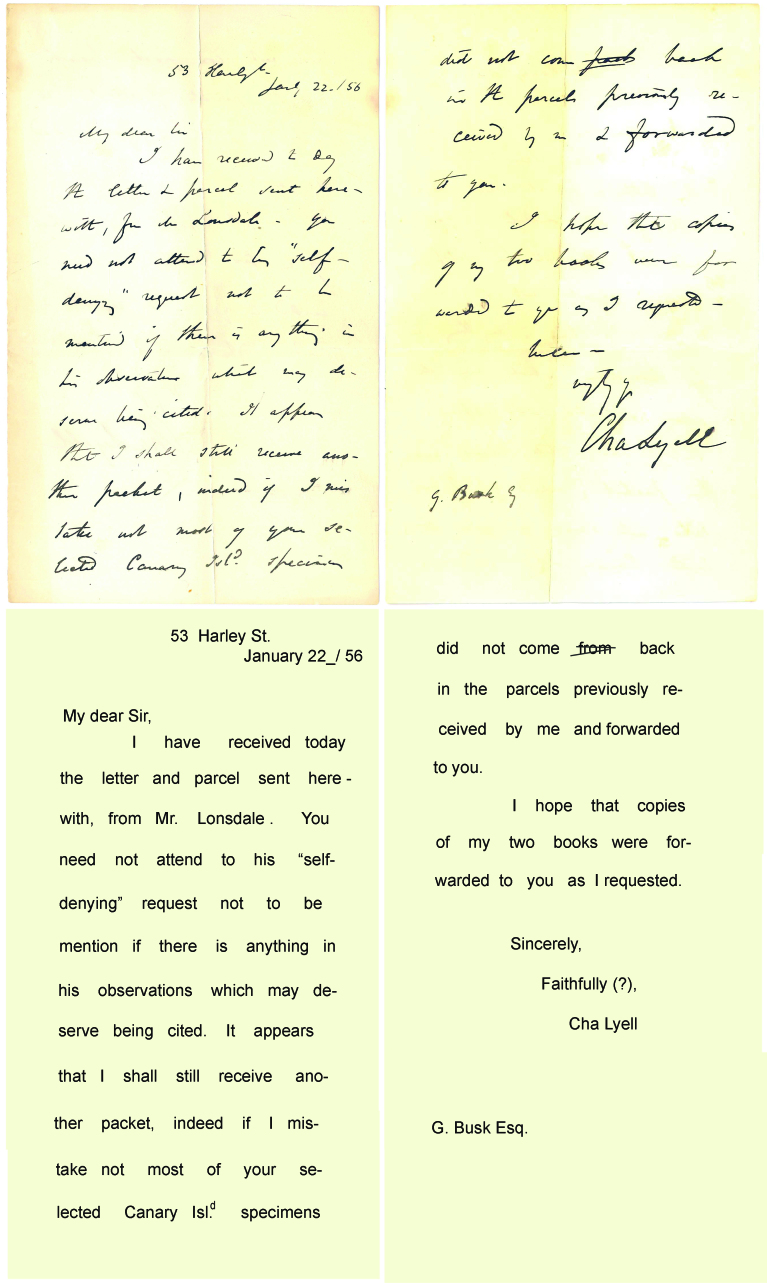 53 Harley St.
Jany 22./56
My dear Sir
I have received to day
the letter & parcel sent here-
with, from Mr Lonsdale - You
need not attend to his "self-
denying" request not to be
mention'd if there is anything in
his observations which may de-
serve being cited. It appears
that I shall still receive ano-
ther packet, indeed if I mis
take not most of your se-
lected Canary Isl.d specimens
did not come from back
in the parcels previously re-
ceived by me & forwarded
to you.
I hope the copies
of my two books were for
warded to you as I requested -
Cha Lyell
G. Busk Esq
53 Harley St.
January 22_/ 56
My dear Sir,
I have received today
the letter and parcel sent here -
with, from Mr. Lonsdale . You
need not attend to his “self-
denying” request not to be
mention if there is anything in
his observations which may de-
serve being cited. It appears
that I shall still receive ano-
ther packet, indeed if I mis-
take not most of your se-
lected Canary Isl.d specimens
did not come from back
in the parcels previously re-
ceived by me and forwarded
to you.
I hope that copies
of my two books were for-
warded to you as I requested.
Sincerely,
Faithfully (?),
Cha Lyell
G. Busk Esq.